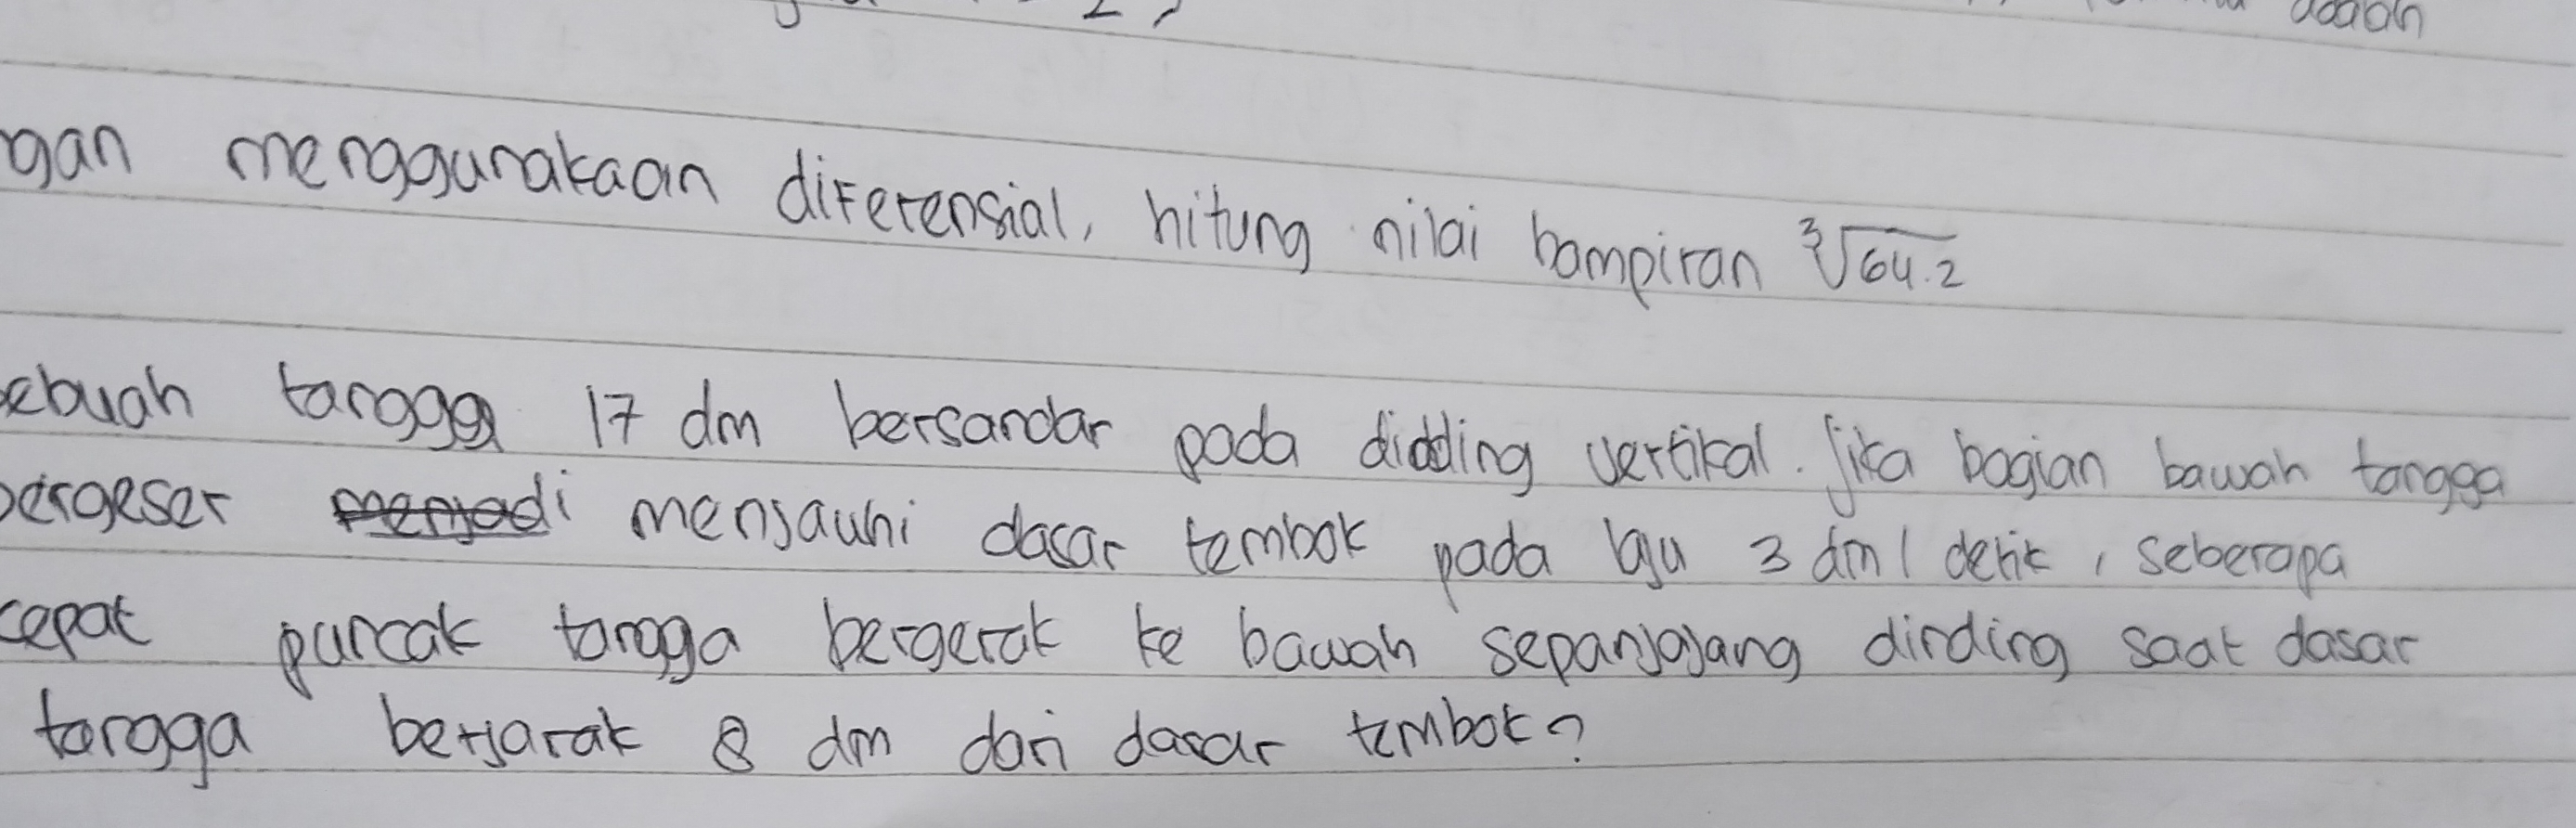 adalah
gan menggunakaan diferensial, hitung nilai hampiran ³√64.2
ebuah tangga 17 dm bersandar pada didding vertikal. Jika bagian bawah tangga
bergeser menjauhi dasar tembok pada laju 3 dm/detik, seberapa
cepat puncak tangga bergerak ke bawah sepanjajang dinding saat dasar
tangga berjarak 8 dm dari dasar tembok?